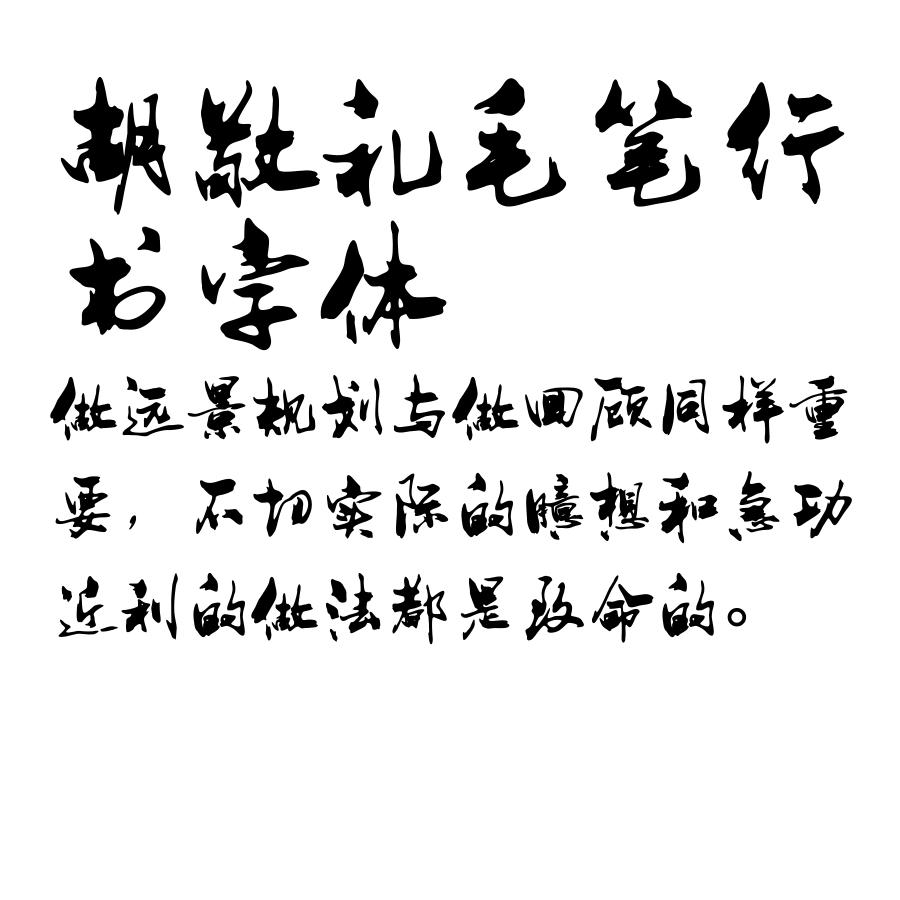 胡敬礼毛笔行
书字体
做远景规划与做回顾同样重
要，不切实际的臆想和急功
近利的做法都是致命的。